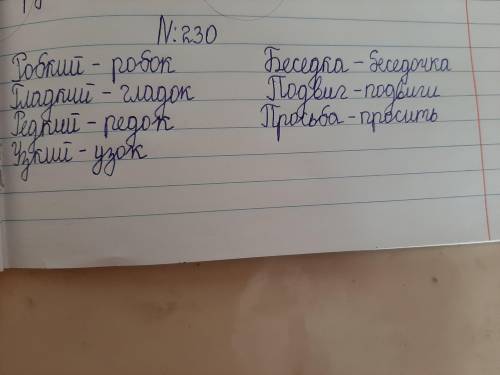 N:230
Робкий - робок
Гладкий - гладок
Редкий - редок
Узкий - узок
Беседка - беседочка
Подвиг - подвиги
Просьба - просить